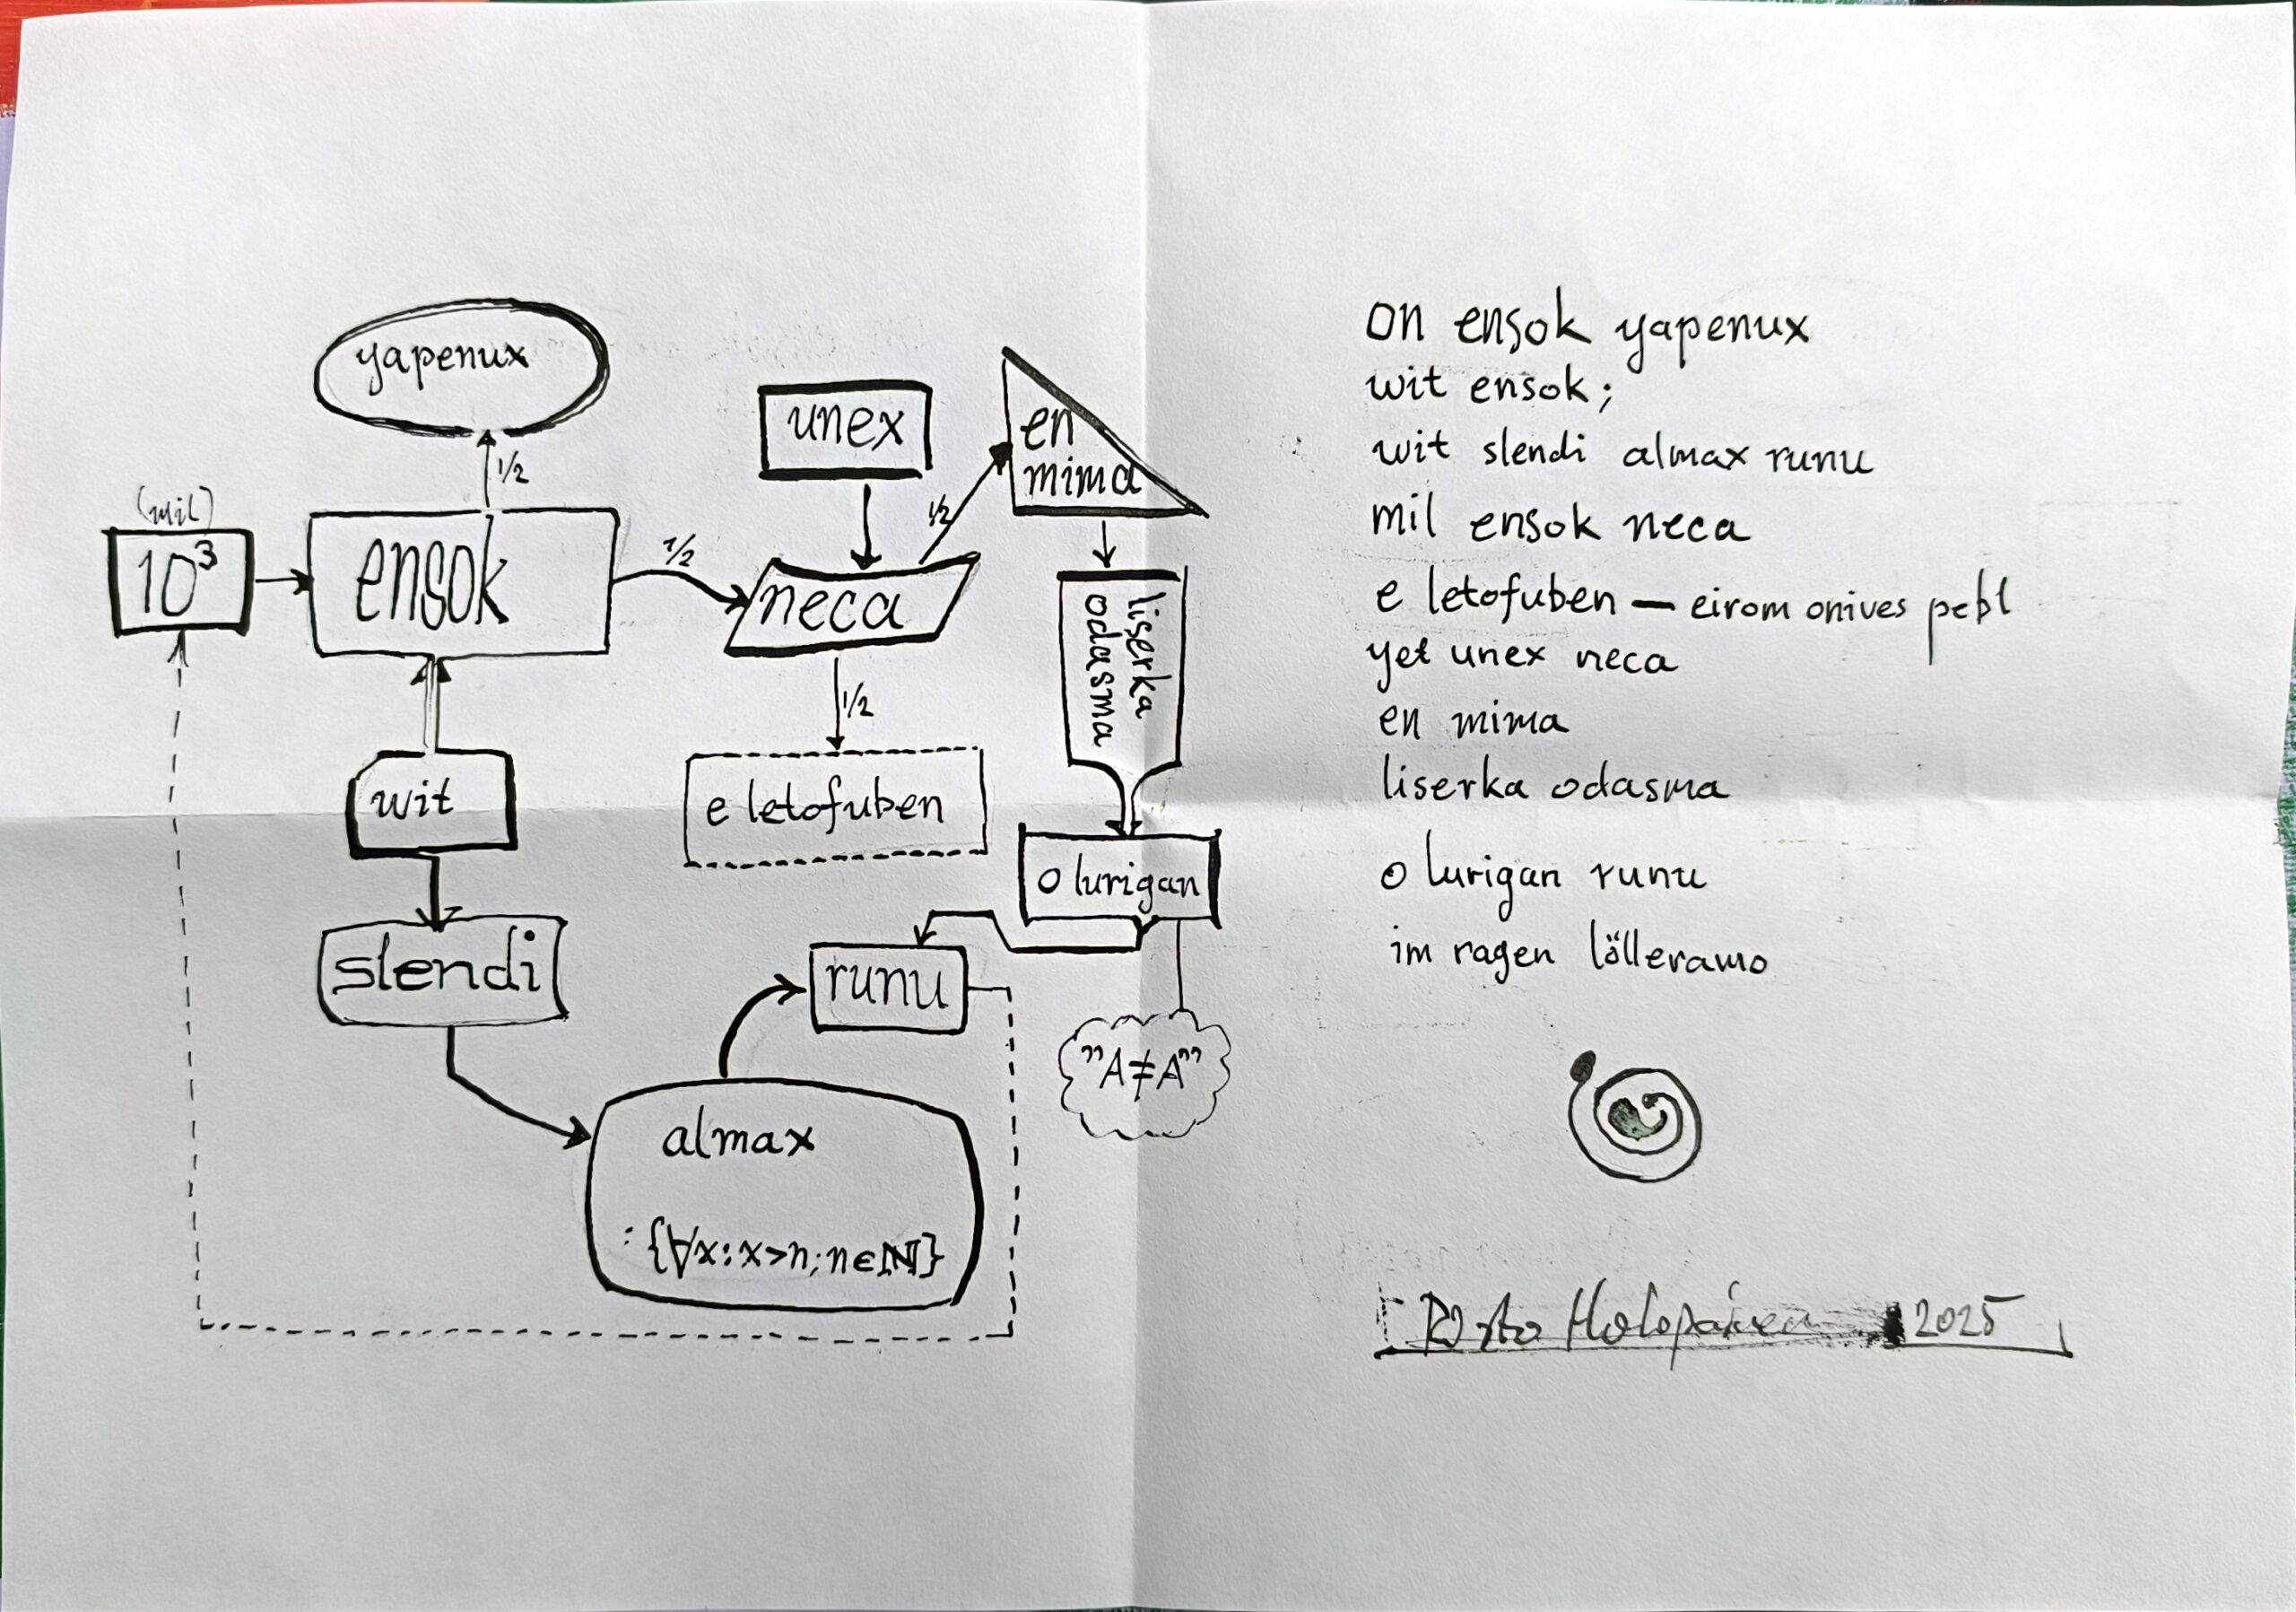 yapenux
1/2
(mil)
10³
ensok
1/2
unex
neca
1/2
en
mima
1/2
e letofuben
liserka
odasma
wit
slendi
o lurigan
runu
"A≠A"
almax
: {∀x:x>n;n∈ℕ}
on ensok yapenux
wit ensok;
wit slendi almax runu
mil ensok neca
e letofuben — eirom onives pebl
yet unex neca
en mima
liserka odasma
o lurigan runu
im ragen lölleramo
Risto Holopainen 2025